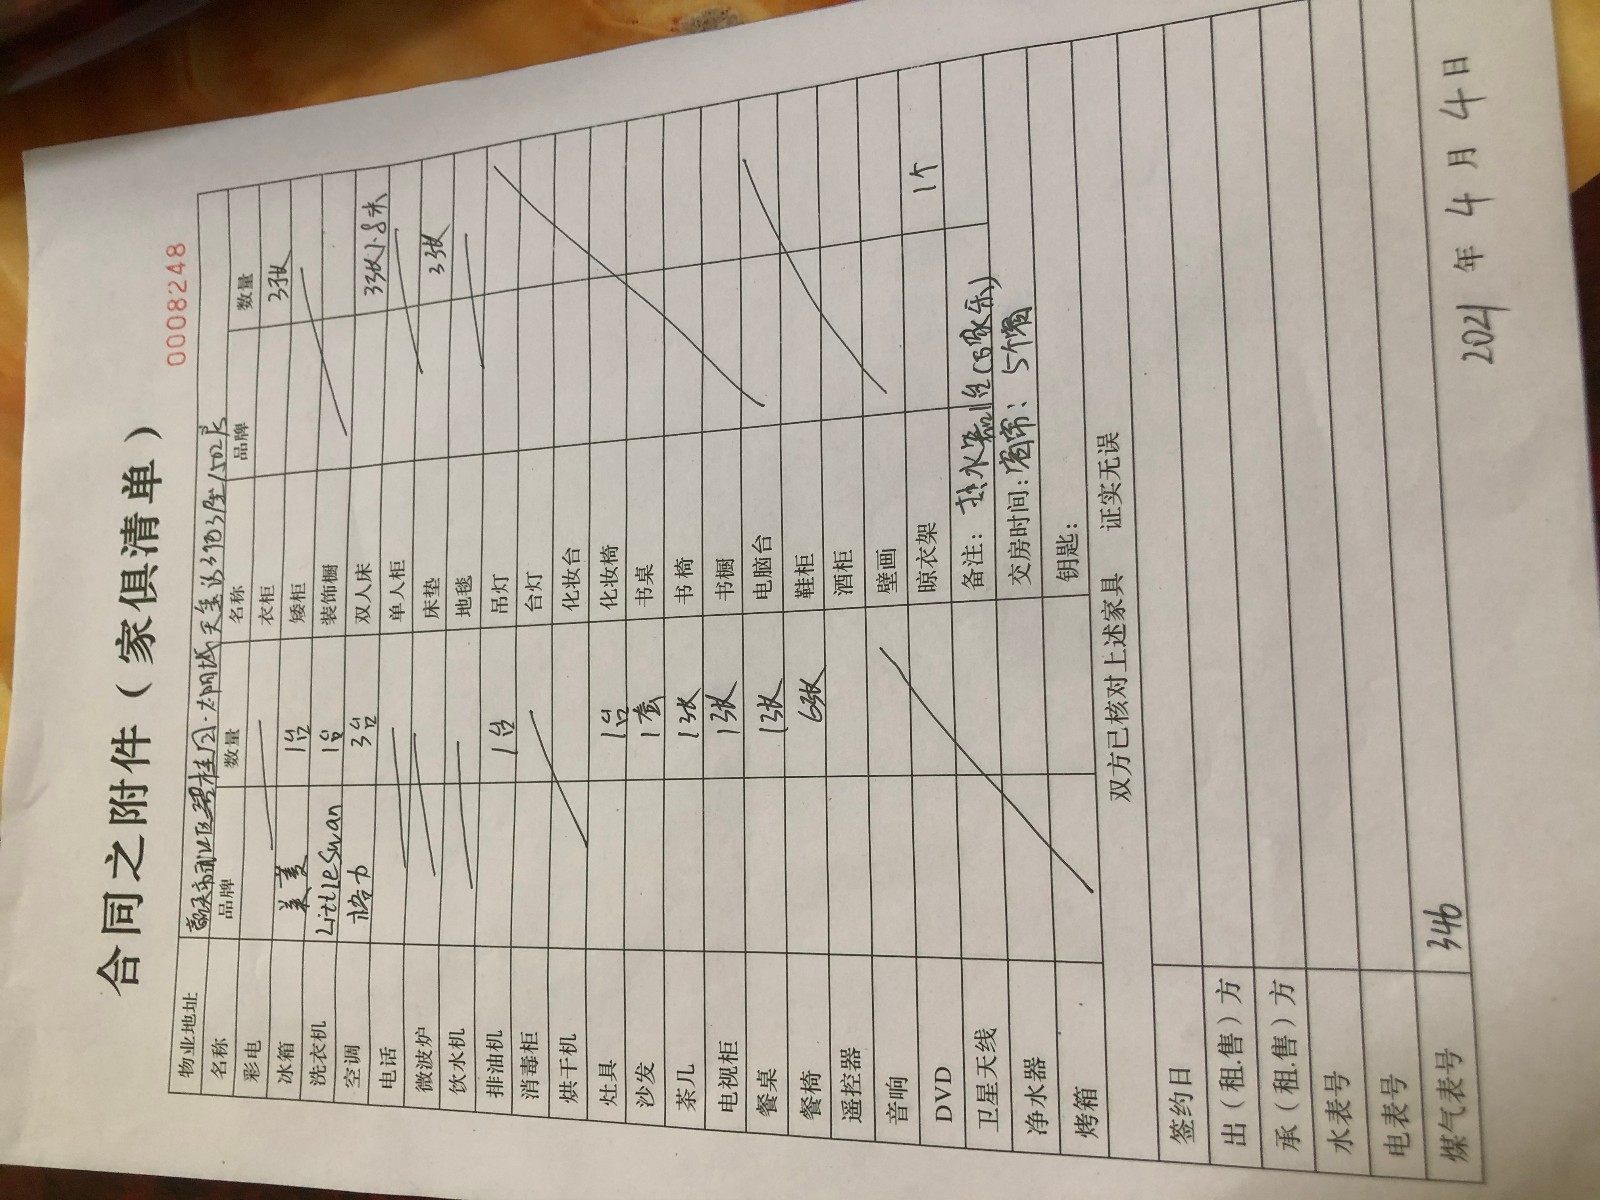 合同之附件（家俱清单）
0008248
物业地址
名称 品牌 数量 名称 品牌 数量
彩电 衣柜 3张
冰箱 美菱 1台 矮柜
洗衣机 LittleSwan 1台 装饰橱
空调 格力 3台 双人床 3张1.8米
电话 单人柜
微波炉 床垫 3张
饮水机 地毯
排油机 1台 吊灯
消毒柜 台灯
烘干机 化妆台
灶具 1台 化妆椅
沙发 1套 书桌
茶儿 1张 书椅
电视柜 1张 书橱
餐桌 1张 电脑台
餐椅 6张 鞋柜
遥控器 酒柜
音响 壁画
DVD 晾衣架 1个
卫星天线 备注：热水器1台(万家乐)
净水器 交房时间：
烤箱 钥匙：
双方已核对上述家具 证实无误
签约日
出（租.售）方
承（租.售）方
水表号
电表号
煤气表号 346
2021 年 4 月 4 日